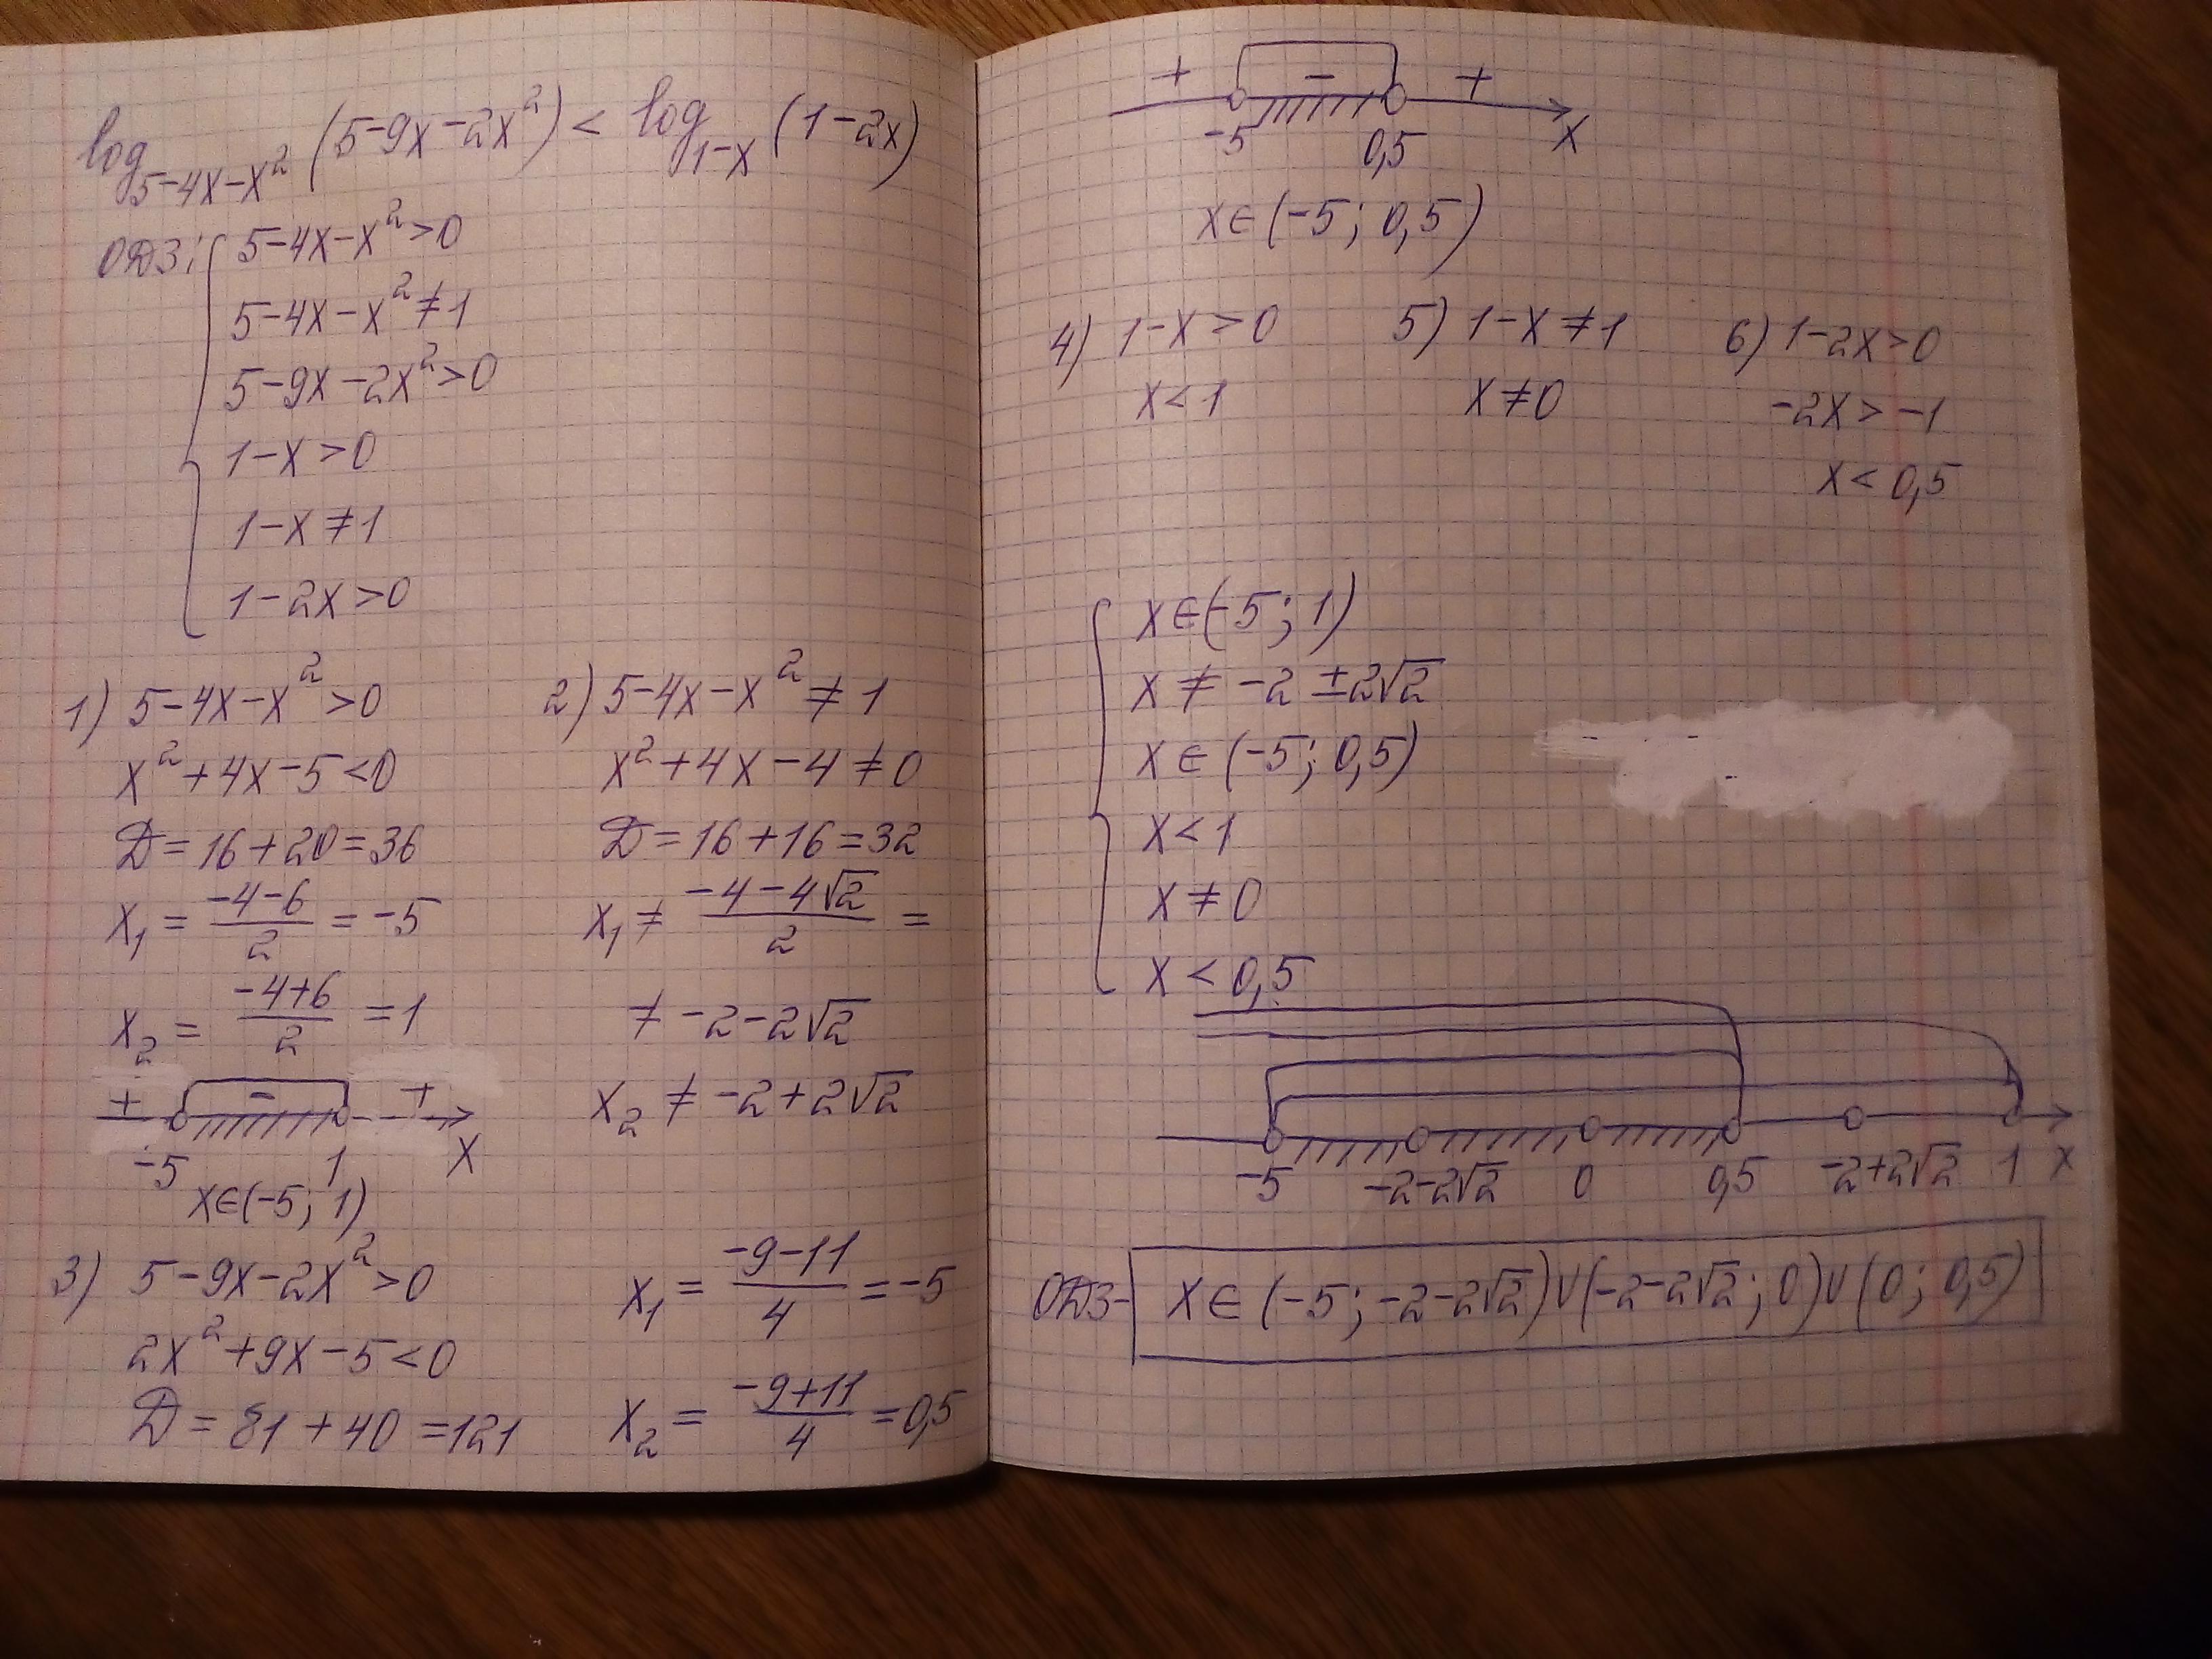 log₅₋₄ₓ₋ₓ² (5-9x-2x²) < log₁₋ₓ (1-2x)
ОДЗ: 5-4x-x²>0
5-4x-x²≠1
5-9x-2x²>0
1-x>0
1-x≠1
1-2x>0
1) 5-4x-x²>0
x²+4x-5<0
D=16+20=36
x₁ = (-4-6)/2 = -5
x₂ = (-4+6)/2 = 1
+ - +
-5 1 x
x∈(-5; 1)
2) 5-4x-x²≠1
x²+4x-4≠0
D=16+16=32
x₁ ≠ (-4-4√2)/2 =
≠ -2-2√2
x₂ ≠ -2+2√2
3) 5-9x-2x²>0
2x²+9x-5<0
D = 81+40=121
x₁ = (-9-11)/4 = -5
x₂ = (-9+11)/4 = 0,5
+ - +
-5 0,5 x
x∈(-5; 0,5)
4) 1-x>0
x<1
5) 1-x≠1
x≠0
6) 1-2x>0
-2x>-1
x<0,5
x∈(-5; 1)
x ≠ -2 ±2√2
x∈(-5; 0,5)
x<1
x≠0
x<0,5
-5 -2-2√2 0 0,5 -2+2√2 1 x
ОДЗ- x∈(-5; -2-2√2)∪(-2-2√2; 0)∪(0; 0,5)